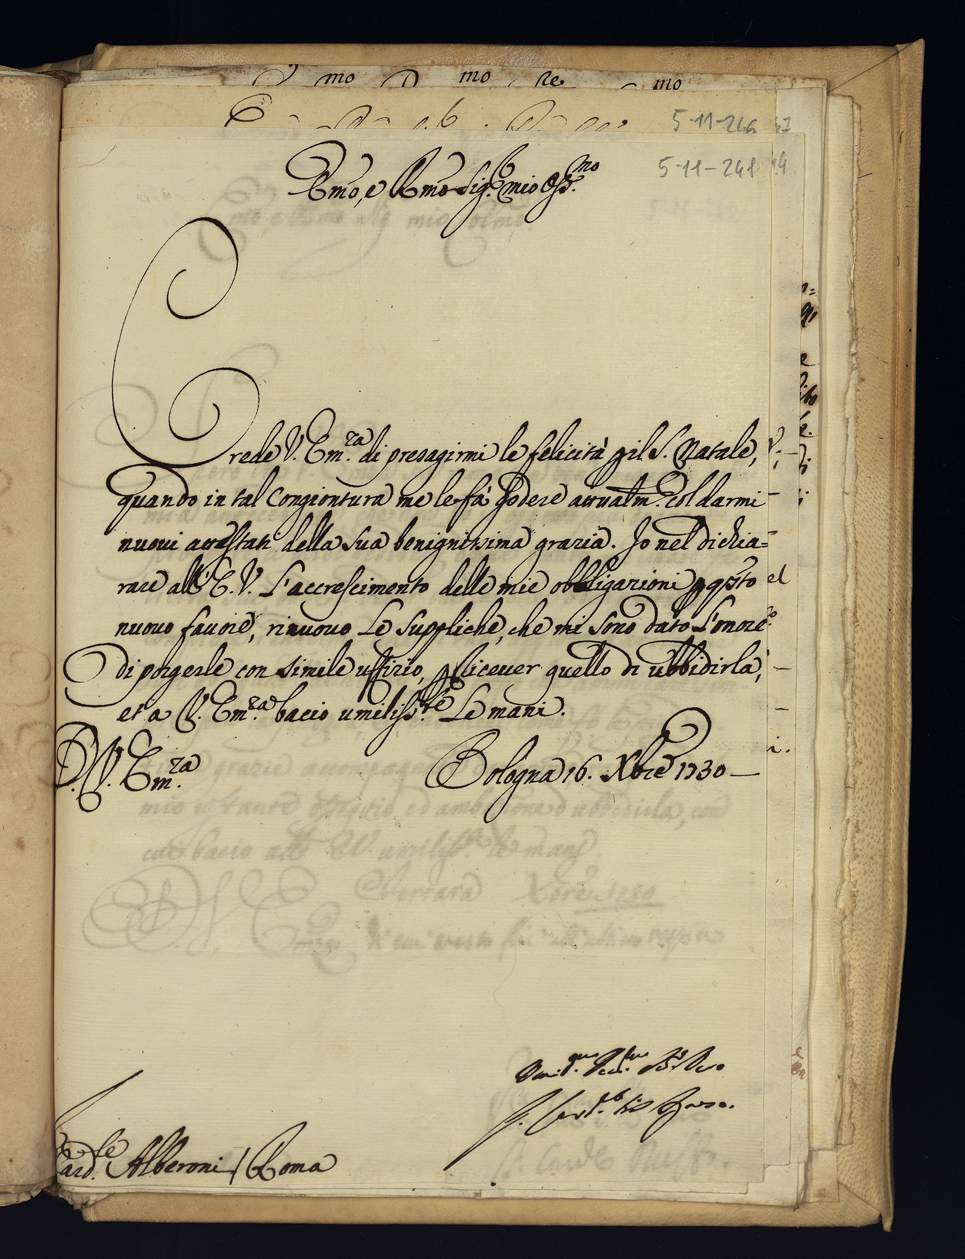 5-11-246
5-11-248
Emo, e Rmo Sig.r mio Oss.mo
Crede V. Em.za di presagirmi le felicità p il S. Natale,
quando in tal congiontura me le fà godere attualm.e col darmi
nuovi attestati della sua benignissima grazia. Io nel dichia=
rare all'E. V. l'accrescimento delle mie obbligazioni p qsto
nuovo favore, rinuovo le suppliche, che mi sono dato l'onore
di porgerle con simile uffizio, p ricever quello di ubbidirla,
et a V. Em.za bacio umiliss.te le mani.
D. V. Em.za
Bologna 16. Xbre 1730
Card.le Alberoni / Roma